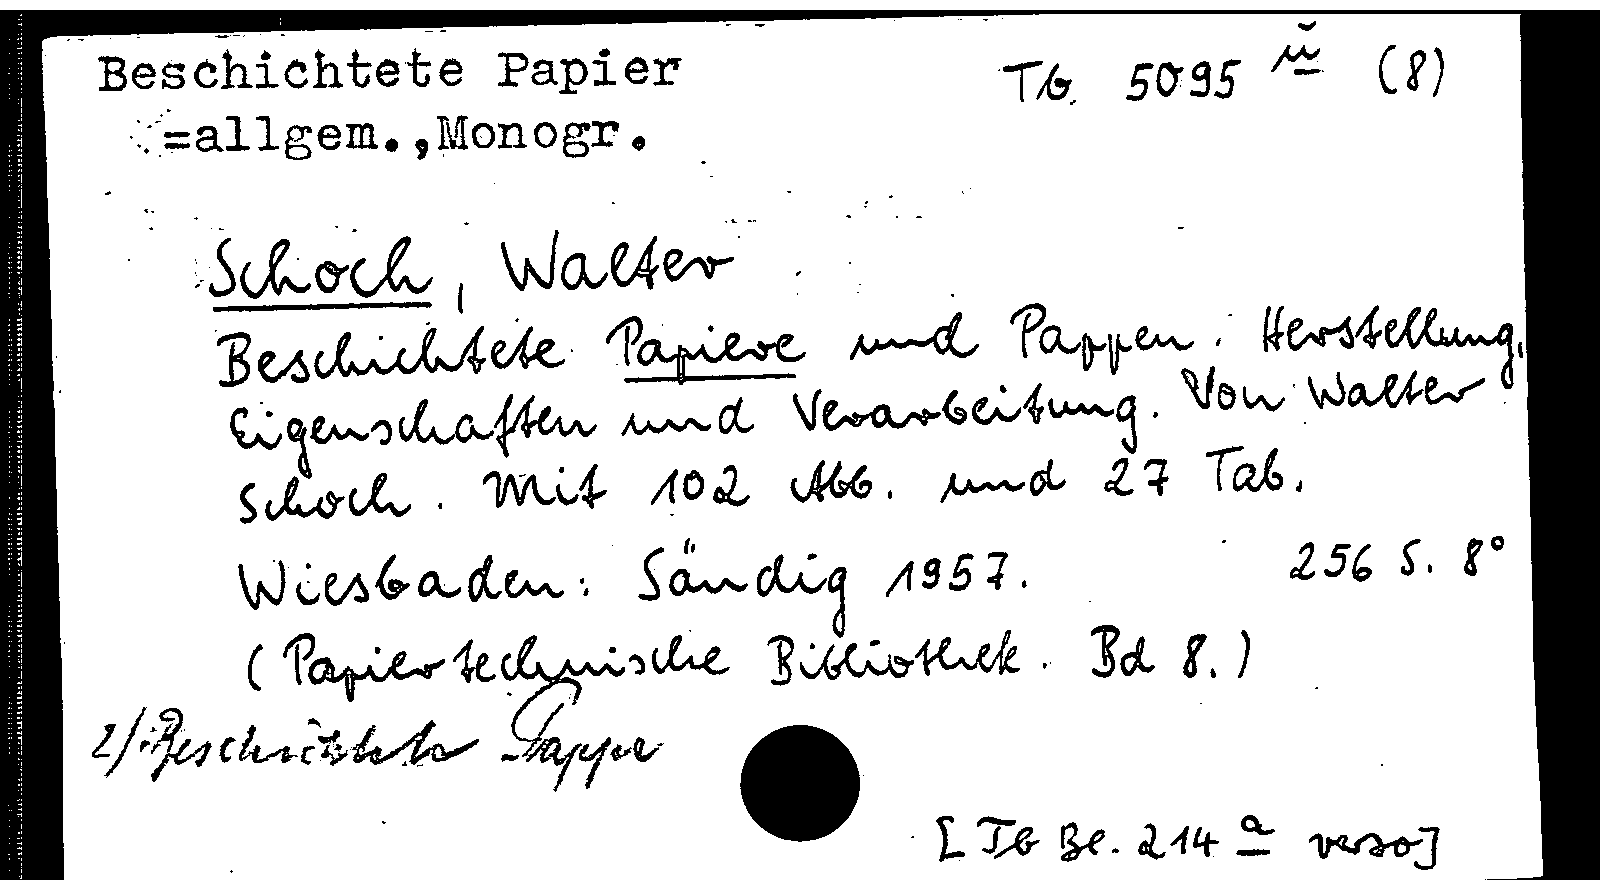 Beschichtete Papier
Tb. 5095 ǔ (8)
=allgem.,Monogr.
Schoch, Walter
Beschichtete Papiere und Pappen. Herstellung,
Eigenschaften und Verarbeitung. Von Walter
Schoch. Mit 102 Abb. und 27 Tab.
Wiesbaden: Sändig 1957. 256 S. 8°
(Papiertechnische Bibliothek. Bd 8.)
2/ Beschichtete Pappe
[Tb Bl. 214 a verso]